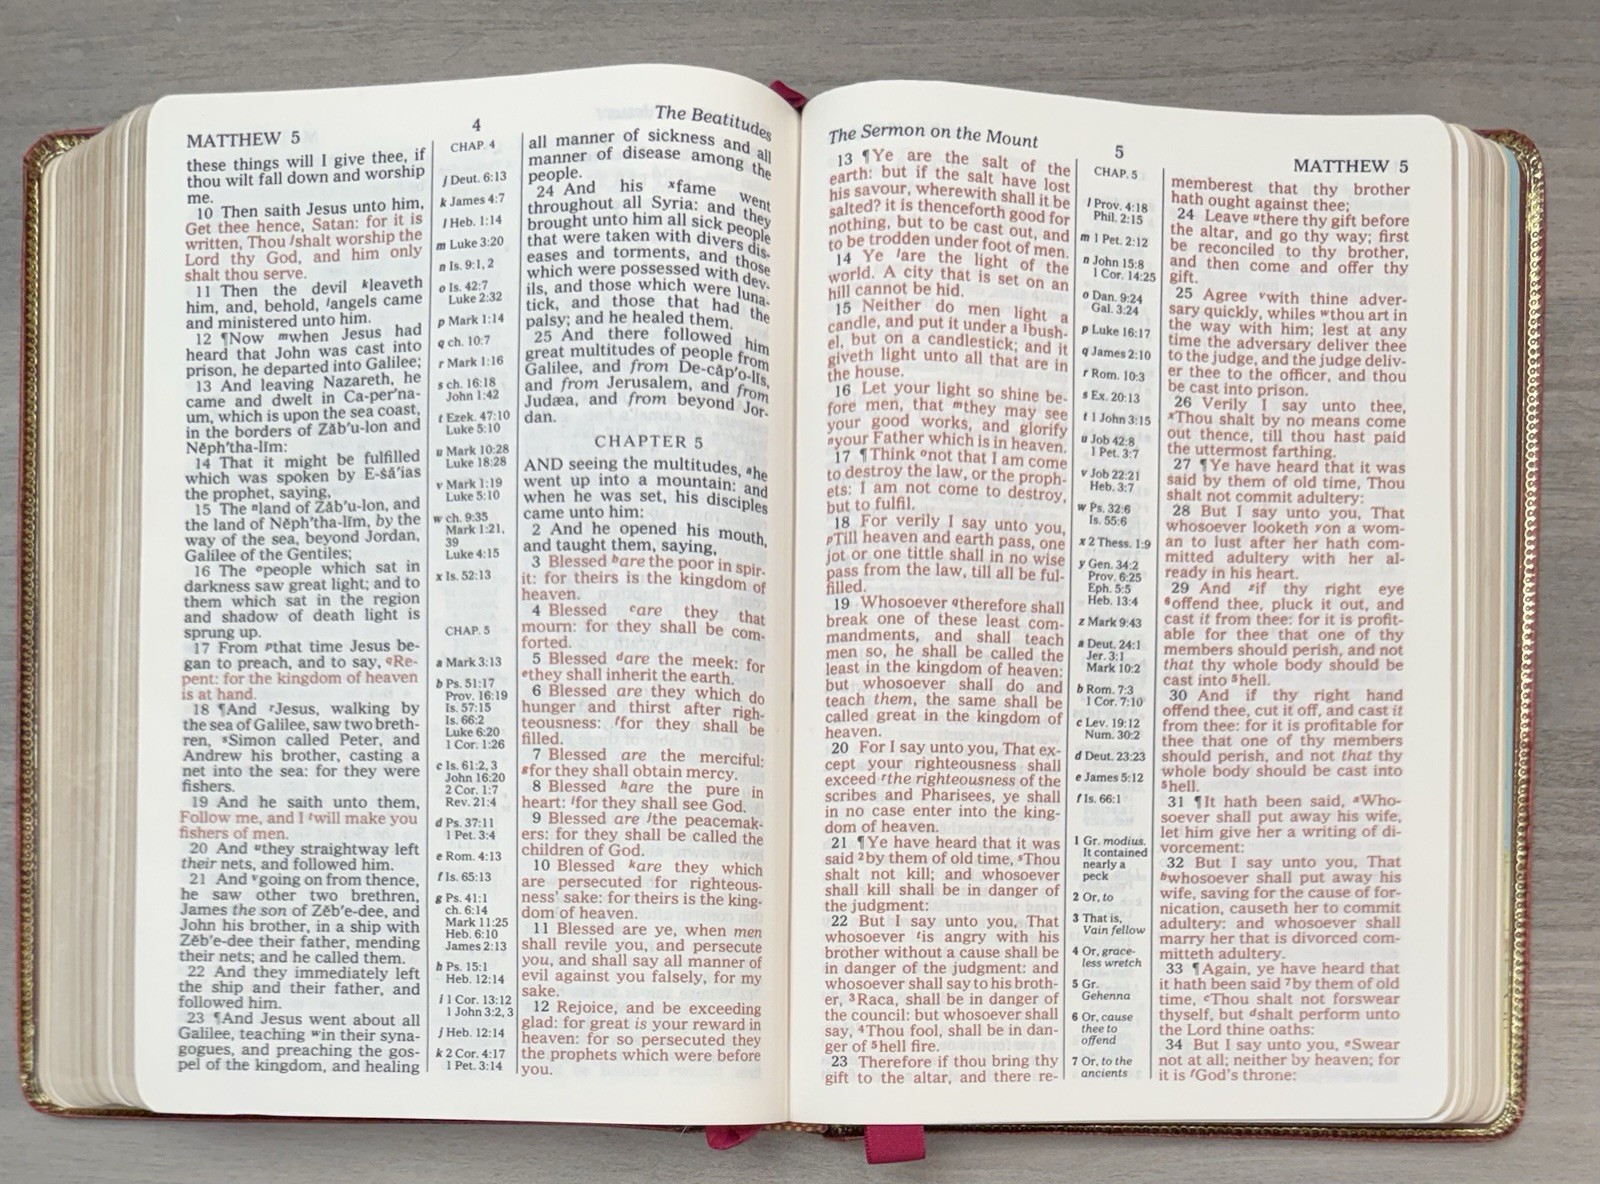 MATTHEW 5
4
The Beatitudes
these things will I give thee, if
thou wilt fall down and worship
me.
10 Then saith Jesus unto him,
Get thee hence, Satan: for it is
written, Thou jshalt worship the
Lord thy God, and him only
shalt thou serve.
11 Then the devil kleaveth
him, and, behold, langels came
and ministered unto him.
12 ¶Now mwhen Jesus had
heard that John was cast into
prison, he departed into Galilee;
13 And leaving Nazareth, he
came and dwelt in Ca-per'na-
um, which is upon the sea coast,
in the borders of Zăb'u-lon and
Nĕph'tha-lĭm:
14 That it might be fulfilled
which was spoken by E-ṣā'ias
the prophet, saying,
15 The nland of Zăb'u-lon, and
the land of Nĕph'tha-lĭm, by the
way of the sea, beyond Jordan,
Galilee of the Gentiles;
16 The opeople which sat in
darkness saw great light; and to
them which sat in the region
and shadow of death light is
sprung up.
17 From pthat time Jesus be-
gan to preach, and to say, qRe-
pent: for the kingdom of heaven
is at hand.
18 ¶And rJesus, walking by
the sea of Galilee, saw two breth-
ren, sSimon called Peter, and
Andrew his brother, casting a
net into the sea: for they were
fishers.
19 And he saith unto them,
Follow me, and I twill make you
fishers of men.
20 And uthey straightway left
their nets, and followed him.
21 And vgoing on from thence,
he saw other two brethren,
James the son of Zĕb'e-dee, and
John his brother, in a ship with
Zĕb'e-dee their father, mending
their nets; and he called them.
22 And they immediately left
the ship and their father, and
followed him.
23 ¶And Jesus went about all
Galilee, teaching win their syna-
gogues, and preaching the gos-
pel of the kingdom, and healing
CHAP. 4
j Deut. 6:13
k James 4:7
l Heb. 1:14
m Luke 3:20
n Is. 9:1, 2
o Is. 42:7
Luke 2:32
p Mark 1:14
q ch. 10:7
r Mark 1:16
s ch. 16:18
John 1:42
t Ezek. 47:10
Luke 5:10
u Mark 10:28
Luke 18:28
v Mark 1:19
Luke 5:10
w ch. 9:35
Mark 1:21,
39
Luke 4:15
x Is. 52:13
CHAP. 5
a Mark 3:13
b Ps. 51:17
Prov. 16:19
Is. 57:15
Is. 66:2
Luke 6:20
1 Cor. 1:26
c Is. 61:2, 3
John 16:20
2 Cor. 1:7
Rev. 21:4
d Ps. 37:11
1 Pet. 3:4
e Rom. 4:13
f Is. 65:13
g Ps. 41:1
ch. 6:14
Mark 11:25
Heb. 6:10
James 2:13
h Ps. 15:1
Heb. 12:14
i 1 Cor. 13:12
1 John 3:2, 3
j Heb. 12:14
k 2 Cor. 4:17
1 Pet. 3:14
all manner of sickness and all
manner of disease among the
people.
24 And his xfame went
throughout all Syria: and they
brought unto him all sick people
that were taken with divers dis-
eases and torments, and those
which were possessed with dev-
ils, and those which were luna-
tick, and those that had the
palsy; and he healed them.
25 And there followed him
great multitudes of people from
Galilee, and from De-căp'o-lĭs,
and from Jerusalem, and from
Judæa, and from beyond Jor-
dan.
CHAPTER 5
AND seeing the multitudes, ahe
went up into a mountain: and
when he was set, his disciples
came unto him:
2 And he opened his mouth,
and taught them, saying,
3 Blessed bare the poor in spir-
it: for theirs is the kingdom of
heaven.
4 Blessed care they that
mourn: for they shall be com-
forted.
5 Blessed dare the meek: for
ethey shall inherit the earth.
6 Blessed are they which do
hunger and thirst after righ-
teousness: ffor they shall be
filled.
7 Blessed are the merciful:
gfor they shall obtain mercy.
8 Blessed hare the pure in
heart: ifor they shall see God.
9 Blessed are jthe peacemak-
ers: for they shall be called the
children of God.
10 Blessed kare they which
are persecuted for righteous-
ness' sake: for theirs is the king-
dom of heaven.
11 Blessed are ye, when men
shall revile you, and persecute
you, and shall say all manner of
evil against you falsely, for my
sake.
12 Rejoice, and be exceeding
glad: for great is your reward in
heaven: for so persecuted they
the prophets which were before
you.
The Sermon on the Mount
5
MATTHEW 5
13 ¶Ye are the salt of the
earth: but if the salt have lost
his savour, wherewith shall it be
salted? it is thenceforth good for
nothing, but to be cast out, and
to be trodden under foot of men.
14 Ye lare the light of the
world. A city that is set on an
hill cannot be hid.
15 Neither do men light a
candle, and put it under a 1bush-
el, but on a candlestick; and it
giveth light unto all that are in
the house.
16 Let your light so shine be-
fore men, that mthey may see
your good works, and glorify
nyour Father which is in heaven.
17 ¶Think onot that I am come
to destroy the law, or the proph-
ets: I am not come to destroy,
but to fulfil.
18 For verily I say unto you,
pTill heaven and earth pass, one
jot or one tittle shall in no wise
pass from the law, till all be ful-
filled.
19 Whosoever qtherefore shall
break one of these least com-
mandments, and shall teach
men so, he shall be called the
least in the kingdom of heaven:
but whosoever shall do and
teach them, the same shall be
called great in the kingdom of
heaven.
20 For I say unto you, That ex-
cept your righteousness shall
exceed rthe righteousness of the
scribes and Pharisees, ye shall
in no case enter into the king-
dom of heaven.
21 ¶Ye have heard that it was
said 2by them of old time, sThou
shalt not kill; and whosoever
shall kill shall be in danger of
the judgment:
22 But I say unto you, That
whosoever tis angry with his
brother without a cause shall be
in danger of the judgment: and
whosoever shall say to his broth-
er, 3Raca, shall be in danger of
the council: but whosoever shall
say, 4Thou fool, shall be in dan-
ger of 5hell fire.
23 Therefore if thou bring thy
gift to the altar, and there re-
CHAP. 5
l Prov. 4:18
Phil. 2:15
m 1 Pet. 2:12
n John 15:8
1 Cor. 14:25
o Dan. 9:24
Gal. 3:24
p Luke 16:17
q James 2:10
r Rom. 10:3
s Ex. 20:13
t 1 John 3:15
u Job 42:8
1 Pet. 3:7
v Job 22:21
Heb. 3:7
w Ps. 32:6
Is. 55:6
x 2 Thess. 1:9
y Gen. 34:2
Prov. 6:25
Eph. 5:5
Heb. 13:4
z Mark 9:43
a Deut. 24:1
Jer. 3:1
Mark 10:2
b Rom. 7:3
1 Cor. 7:10
c Lev. 19:12
Num. 30:2
d Deut. 23:23
e James 5:12
f Is. 66:1
1 Gr. modius.
It contained
nearly a
peck
2 Or, to
3 That is,
Vain fellow
4 Or, grace-
less wretch
5 Gr.
Gehenna
6 Or, cause
thee to
offend
7 Or, to the
ancients
memberest that thy brother
hath ought against thee;
24 Leave uthere thy gift before
the altar, and go thy way; first
be reconciled to thy brother,
and then come and offer thy
gift.
25 Agree vwith thine adver-
sary quickly, whiles wthou art in
the way with him; lest at any
time the adversary deliver thee
to the judge, and the judge deliv-
er thee to the officer, and thou
be cast into prison.
26 Verily I say unto thee,
xThou shalt by no means come
out thence, till thou hast paid
the uttermost farthing.
27 ¶Ye have heard that it was
said by them of old time, Thou
shalt not commit adultery:
28 But I say unto you, That
whosoever looketh yon a wom-
an to lust after her hath com-
mitted adultery with her al-
ready in his heart.
29 And zif thy right eye
6offend thee, pluck it out, and
cast it from thee: for it is profit-
able for thee that one of thy
members should perish, and not
that thy whole body should be
cast into 5hell.
30 And if thy right hand
offend thee, cut it off, and cast it
from thee: for it is profitable for
thee that one of thy members
should perish, and not that thy
whole body should be cast into
5hell.
31 ¶It hath been said, aWho-
soever shall put away his wife,
let him give her a writing of di-
vorcement:
32 But I say unto you, That
bwhosoever shall put away his
wife, saving for the cause of for-
nication, causeth her to commit
adultery: and whosoever shall
marry her that is divorced com-
mitteth adultery.
33 ¶Again, ye have heard that
it hath been said 7by them of old
time, cThou shalt not forswear
thyself, but dshalt perform unto
the Lord thine oaths:
34 But I say unto you, eSwear
not at all; neither by heaven; for
it is fGod's throne: